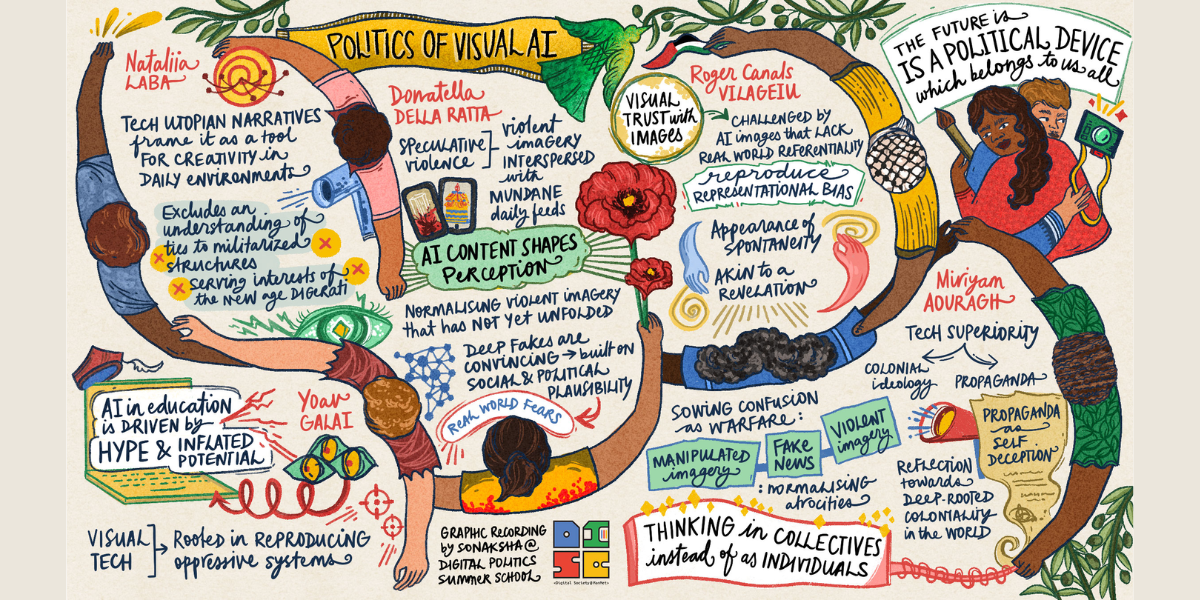 POLITICS OF VISUAL AI
Nataliia
LABA
TECH UTOPIAN NARRATIVES
frame it as a tool
FOR CREATIVITY in
DAILY ENVIRONMENTS
Excludes an
understanding of
ties to militarized
structures
serving interests of
the NEW age DIGERATI
Donatella
DELLA RATTA
SPECULATIVE
violence
violent
imagery
INTERSPERSED
with
MUNDANE
daily feeds
AI CONTENT SHAPES
PERCEPTION
NORMALISING VIOLENT IMAGERY
that has NOT yet UNFOLDED
DEEP FAKES are
CONVINCING → built on
SOCIAL & POLITICAL
PLAUSIBILITY
REAL WORLD FEARS
VISUAL
TRUST with
IMAGES
Roger Canals
VILAGELIU
CHALLENGED BY
AI images that LACK
REAL WORLD REFERENTIALITY
reproduce
REPRESENTATIONAL BIAS
Appearance of
SPONTANEITY
AKIN to a
REVELATION
THE FUTURE is
IS A POLITICAL DEVICE
which belongs to us all
Miriyam
AOURAGH
TECH SUPERIORITY
COLONIAL
ideology
PROPAGANDA
PROPAGANDA
as
SELF
DECEPTION
REFLECTION
towards
DEEP-ROOTED
COLONIALITY
in the WORLD
SOWING CONFUSION
as WARFARE:
MANIPULATED
imagery
FAKE
NEWS
VIOLENT
imagery
: normalising
atrocities
THINKING in COLLECTIVES
instead of as INDIVIDUALS
Yoav
GALAI
AI in education
is DRIVEN by
HYPE & INFLATED
POTENTIAL
VISUAL
TECH
Rooted in REPRODUCING
oppressive systems
GRAPHIC RECORDING
by SONAKSHA @
DIGITAL POLITICS
SUMMER SCHOOL